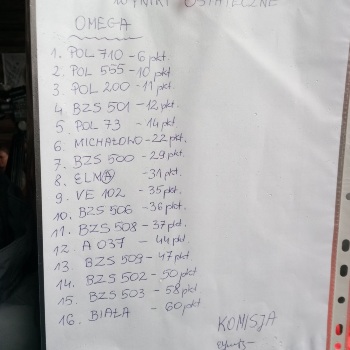 WYNIKI OSTATECZNE
OMEGA
1. POL 710 - 6 pkt.
2. POL 555 - 10 pkt
3. POL 200 - 11 pkt.
4. BZS 501 - 12 pkt.
5. POL 73 - 14 pkt.
6. MICHAŁOWO - 22 pkt.
7. BZS 500 - 29 pkt.
8. ELMA - 31 pkt.
9. VE 102 - 35 pkt.
10. BZS 506 - 36 pkt.
11. BZS 508 - 37 pkt
12. A 037 - 44 pkt
13. BZS 509 - 47 pkt
14. BZS 502 - 50 pkt
15. BZS 503 - 58 pkt
16. BIAŁA - 60 pkt
KOMISJA